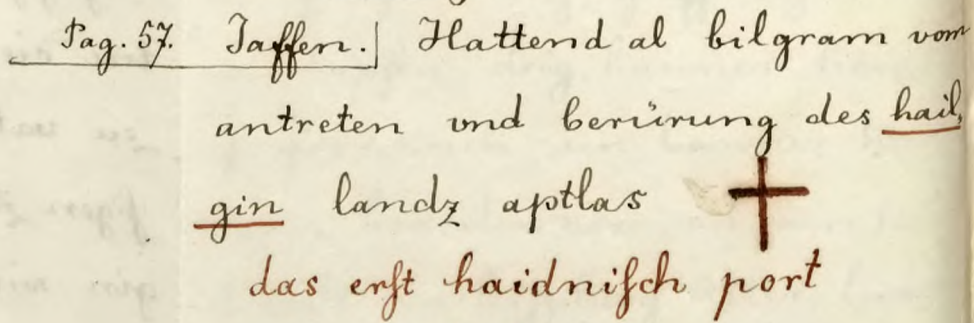 Pag. 57. Jaffen. Hattend al bilgram vom
antreten vnd berürung des hail,
gin landz aptlas
das erſt haidniſch port